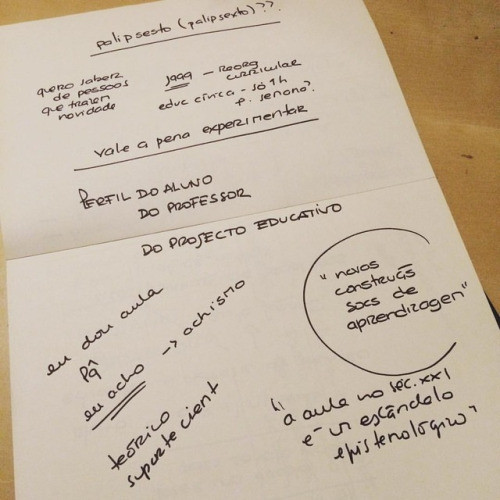 polipsesto (palipsexto)??.
quero saber
de pessoas
que trazem
novidade
1999 – Reorg
curricular
educ cívica – só 1h
p. semana?
vale a pena experimentar
PERFIL DO ALUNO
DO PROFESSOR
DO PROJECTO EDUCATIVO
eu dou aula
pq̂
eu acho → achismo
teórico
suporte cient
"novas
construçõs
socs de
aprendizagem"
"a aula no séc. XXI
é um escândalo
epistemológico"